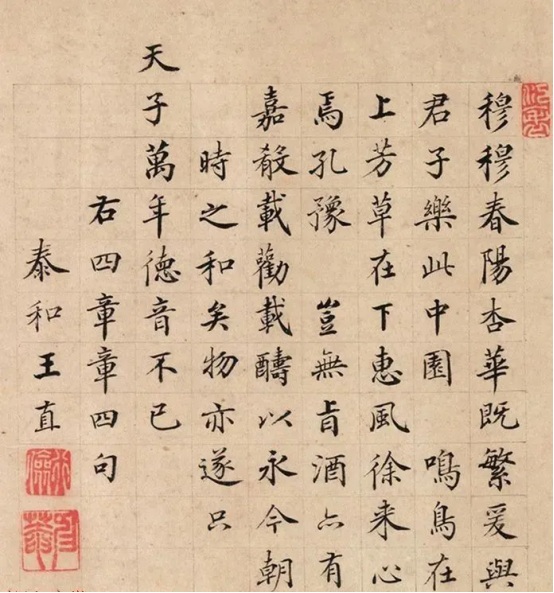 穆穆春陽杏華既繁爰與
君子樂此中園 鳴鳥在
上芳草在下惠風徐来心
焉孔豫 豈無旨酒亦有
嘉殽載勸載醻以永今朝
時之和矣物亦遂只
天子萬年徳音不已
右四章章四句
泰和王直